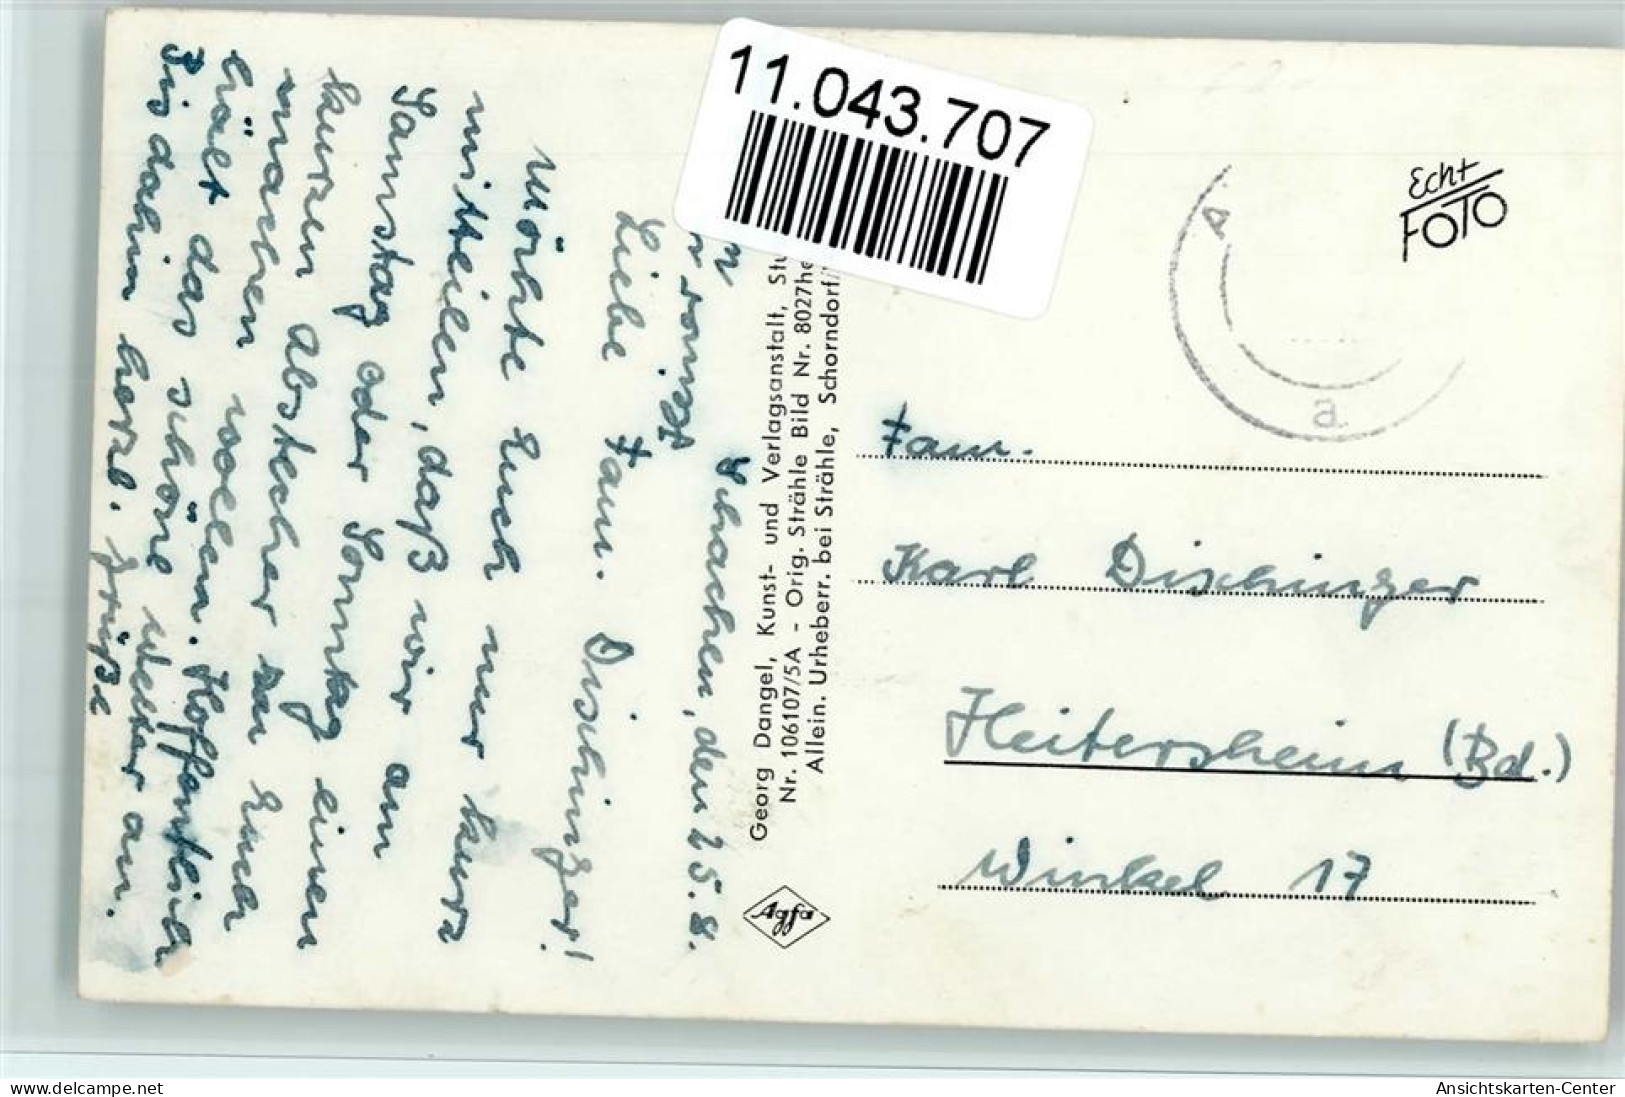 11.043.707
Echt
FOTO
A
a
Schachen, den 25.8.
Liebe Fam. Dischinger!
Möchte Euch nur kurz
mitteilen, daß wir am
Samstag oder Sonntag einen
kurzen abstecher zu Euch
machen wollen. Hoffentlich
hält das schöne Wetter an.
Bis dahin herzl. Grüße
Georg Dangel, Kunst- und Verlagsanstalt, Stu
Nr. 106107/5A - Orig. Strähle Bild Nr. 8027he
Allein. Urheberr. bei Strähle, Schorndorf/
Agfa
Fam.
Karl Dischinger
Heitersheim (Bd.)
Winkel 17
www.delcampe.net
Ansichtskarten-Center